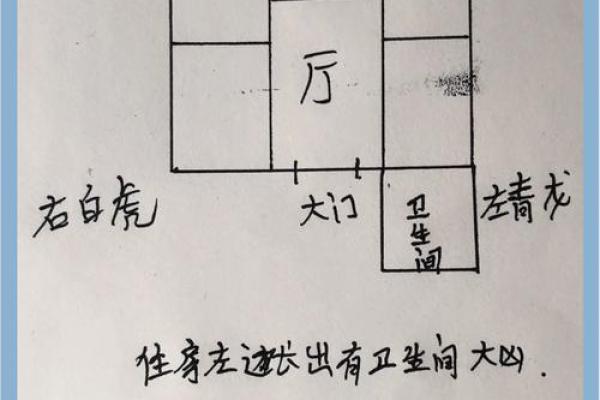 厅
右白虎
大门
卫生间
左青龙
住房左边长出有卫生间大凶.